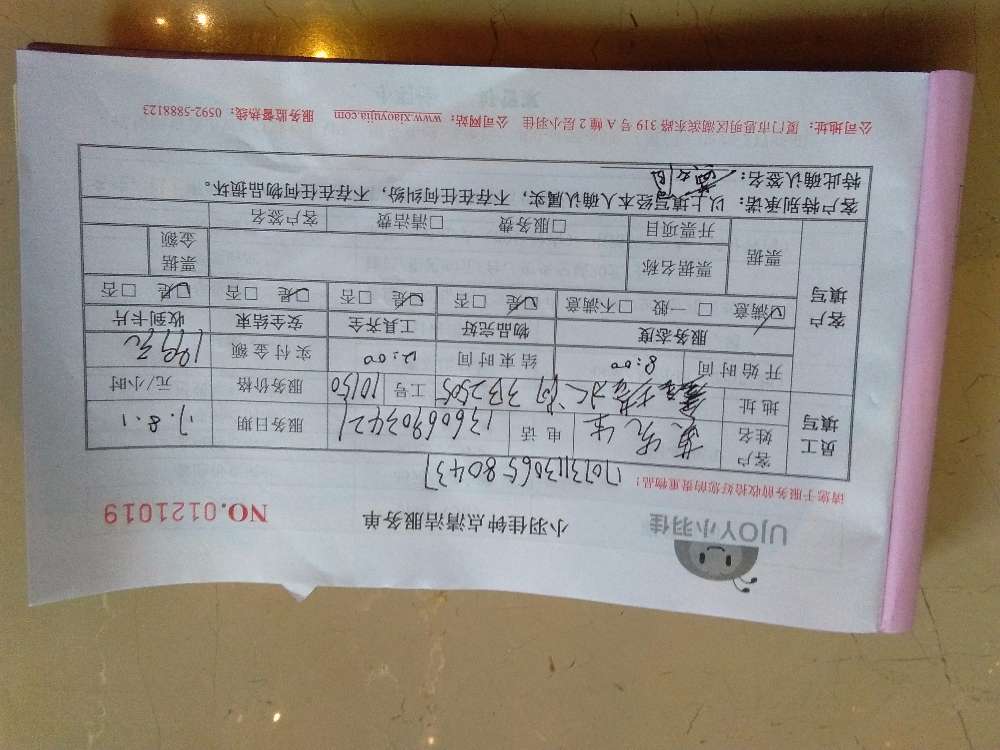 UJOY小羽佳
小羽佳钟点清洁服务单
NO.0121019
请您于服务前收拾好您的贵重物品！
员工填写
客户姓名
黄先生
电话
13606903421
服务日期
17.8.1
地址
3B2505
工号
10150
服务价格
元/小时
开始时间
8:00
结束时间
12:00
实付金额
199元
客户填写
服务态度
物品完好
工具齐全
安全结束
收到卡片
☑满意 □一般 □不满意
☑是 □否
☑是 □否
☑是 □否
☑是 □否
票据
票据名称
票据金额
开票项目
□服务费 □清洁费
客户签名
客户特别承诺：以上填写经本人确认属实，不存在任何纠纷，不存在任何物品损坏。
特此确认签名：
公司地址：厦门市思明区湖滨东路 319 号 A 幢 2 层小羽佳 公司网站：www.xiaoyujia.com 服务监督热线：0592-5888123